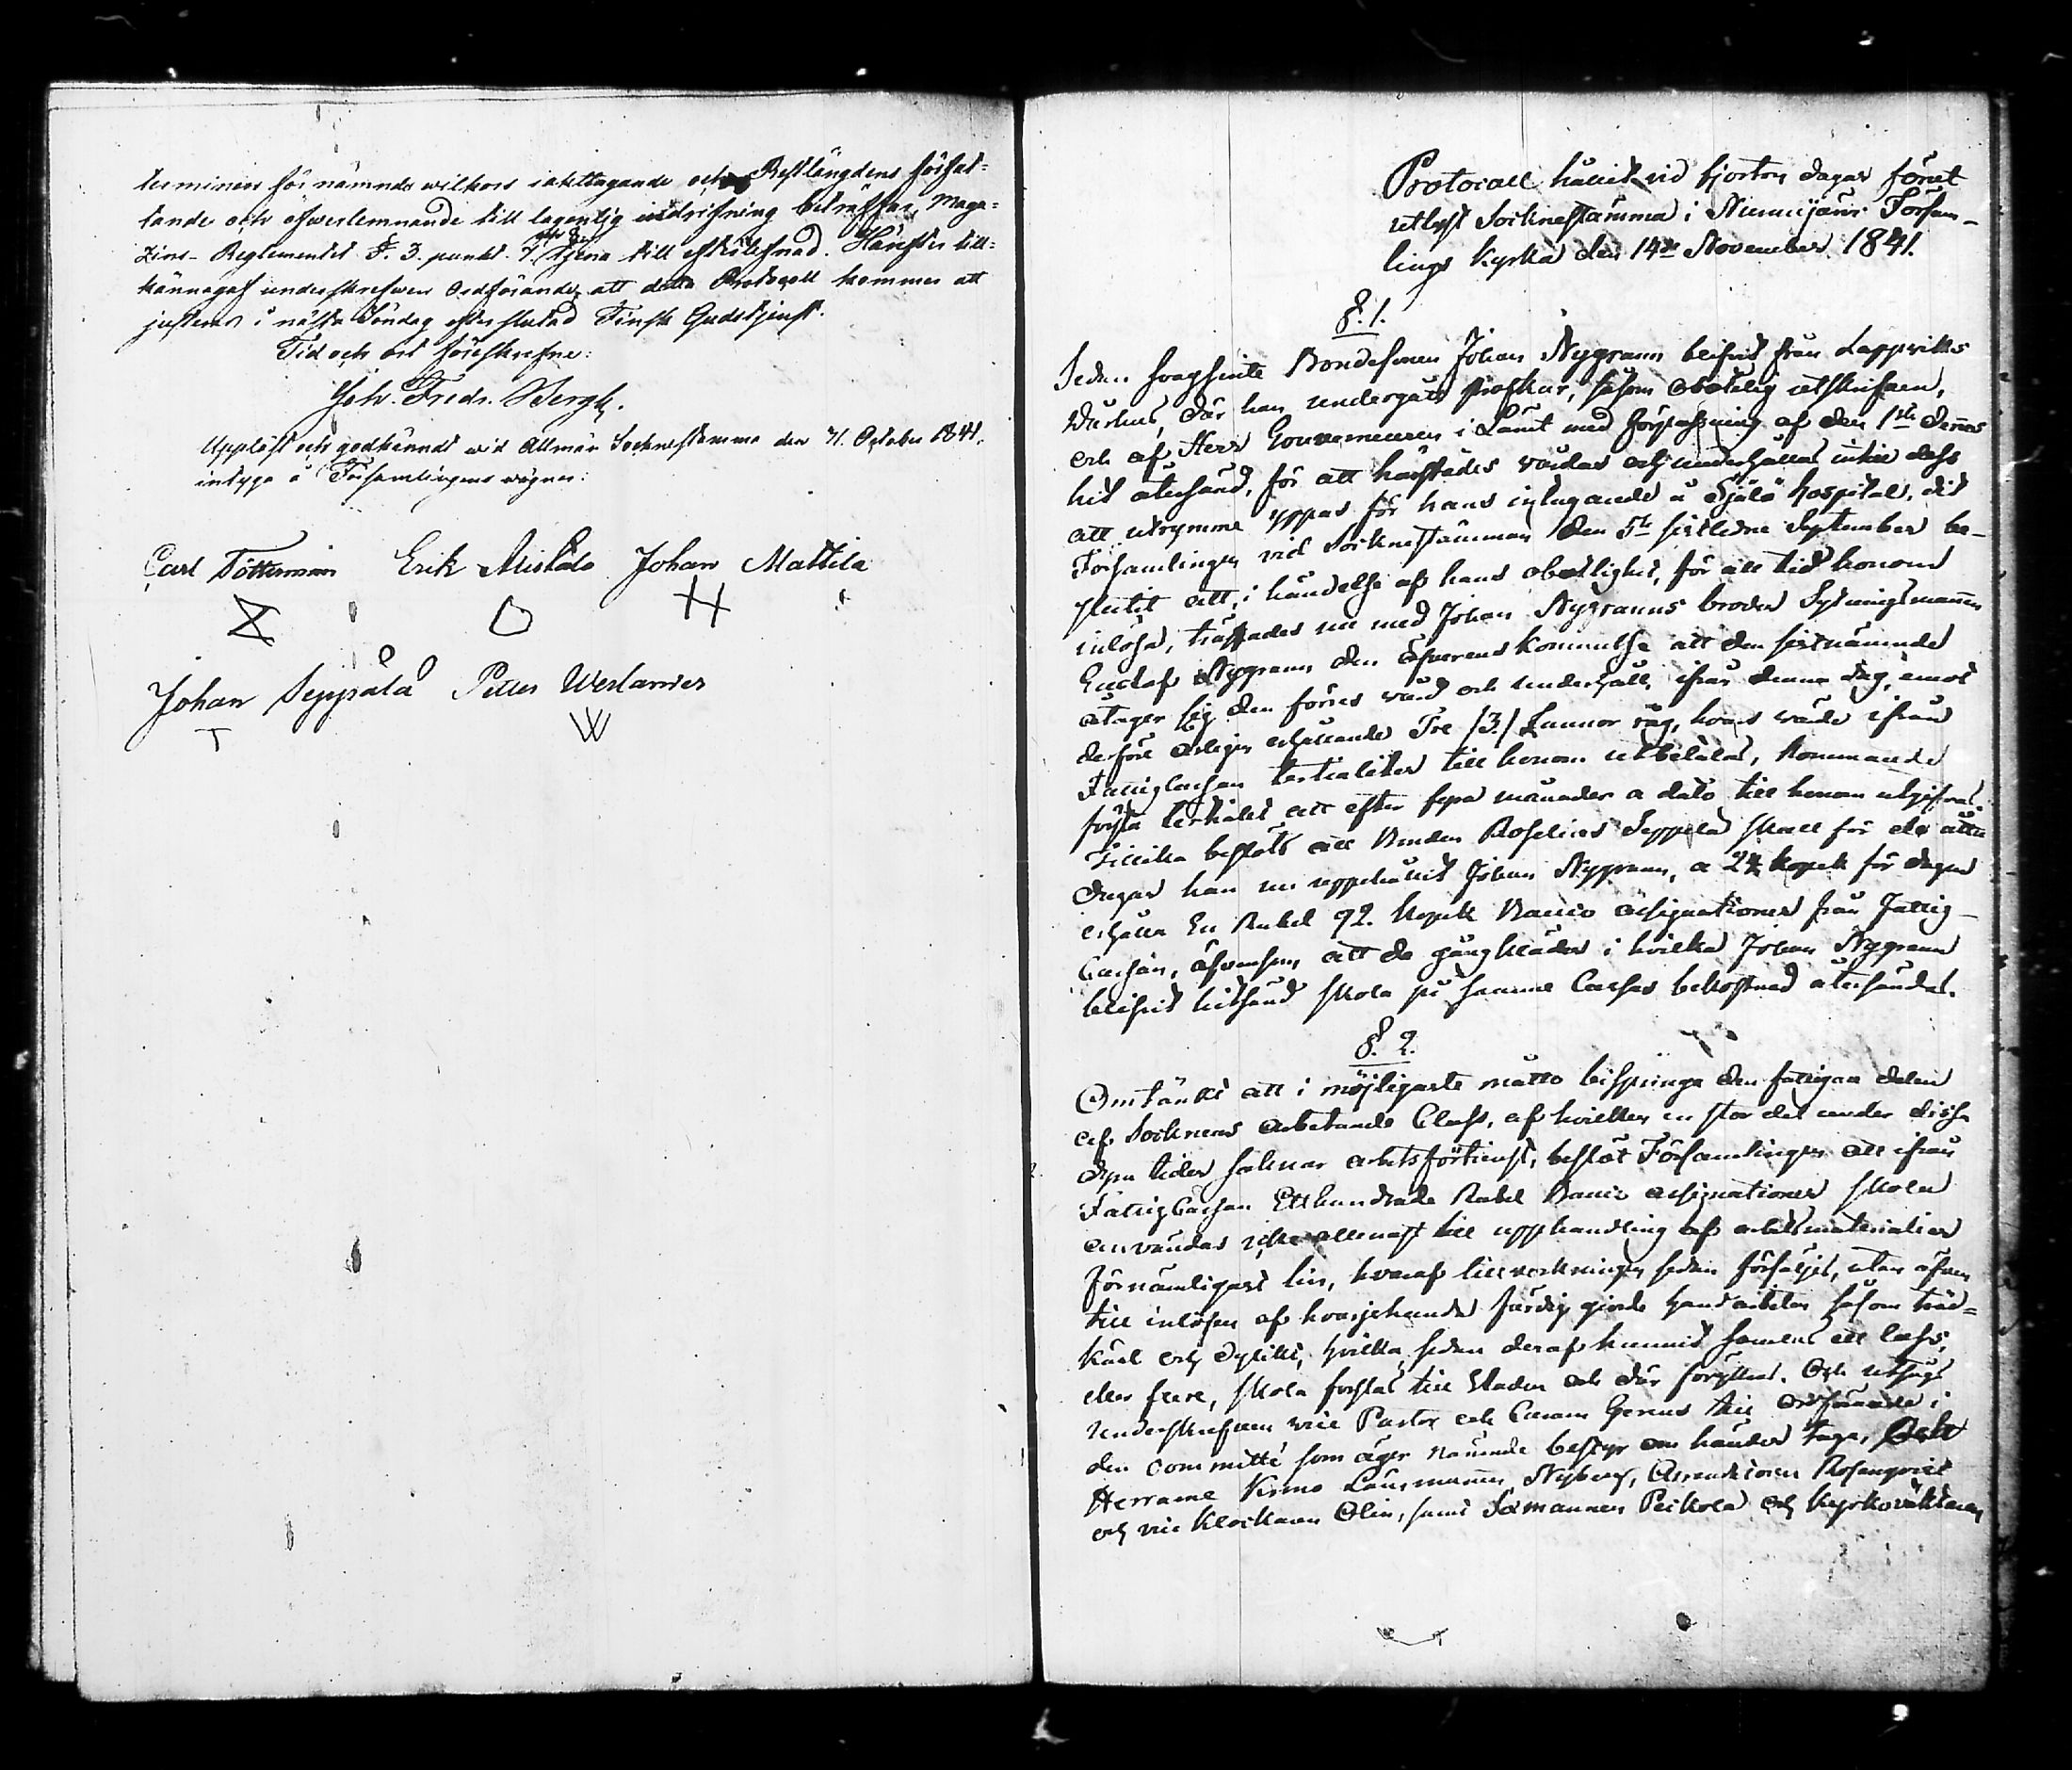 terminens för nämnde wilkors iakttagande och Restlängdens författ-
tande och öfwerlemnande till lagenlig indrifning beträffar, Maga-
zins-Reglementet §. 3. punkt. 7 och 8. tjena till efterlefnad. Härefter till-
kännagaf underskrefwen Ordförande, att detta Protocoll kommer att
justeras i nästa Söndag efter slutad Finsk Gudstjenst.
Tid och ort föreskrefne:
Joh. Fredr. Bergh.
Uppläst och godkänndt wid Allmän Sockenstämma den 31. October 1841.
intyga å Församlingens wägnar:
Carl Tötterman Erik Johan Mattila
Johan Seppälä Petter Weslander
Protocoll hållit vid fjorton dagar förut
utlyst Socknestämma i Nummijärvi Försam-
lings Kyrka den 14de November 1841.
§. 1.
Sedan svagsinte Bondesonen Johan Nygrann blifvit från Lappviks
Dårhus, där han undergått profkur, såsom obotelig utskrifven,
och af Herr Gouverneuren i Länet med förpassning af den 1ste dennes
hit återsänd, för att härstädes vårdas och underhållas intill dess
att utrymme yppas för hans intagande å Själö hospital, dit
Församlingen vid Socknestämman den 5te sistledne September be-
slutit att, i händelse af hans obotlighet, för all tid honom
inlösa, träffades nu med Johan Nygranns broder Sytningsmannen
Gustaf Nygrann den öfverenskommelse att den sistnämnde
åtager sig den förres vård och underhåll, ifrån denne dag, emot
derföre årligen erhållande Tre /3./ Tunnor råg, hvars värde ifrån
Fattigcassan tertialiter till honom utbetalas, kommande
första tertialet att efter fyra månader a dato till honom utgifvas.
Tillika beslöts att Bonden Roselius Seppälä skall för de åtta
dagar han nu uppehållit Johan Nygrann, a 24 kopek för dagen
erhålla En Rubel 92. kopek Banco assignationer från Fattig-
Cassan, äfvensom att de gångkläder i hvilka Johan Nygrann
blifvit hitsänd skola på samme Cassas bekostnad återsändas.
§. 2.
Omtänkt att i möjligaste måtto bispringa den fattigare delen
af Socknens arbetande Class, af hvilken en stor del under dessa
dyra tider saknar arbetsförtienst, beslöt Församlingen att ifrån
FattigCassan Etthundrade Rubel Banco assignationer skola
användas icke allenast till upphandling af arbetsmaterialier
förnämligast lin, hvaraf tillverkningen sedan försäljes, utan äfven
till inlösen af hvarjehanda färdig gjorde handarbeten såsom träd-
kärl och dylikt, hvilka, sedan deraf hunnit samlas ett lass,
eller flere, skola forslas till Staden och där föryttras. Och utsågs
underskrefven vice Pastor och Curam Gerens till Ordförande i
den committé som äger nämnde bestyr om händer taga,
Herrarne Krono Länsmannen Nyberg, Arrendatoren Rosenqvist
och vice klockaren Olin, samt Sexmannen Peikola och Kyrkovärdarne